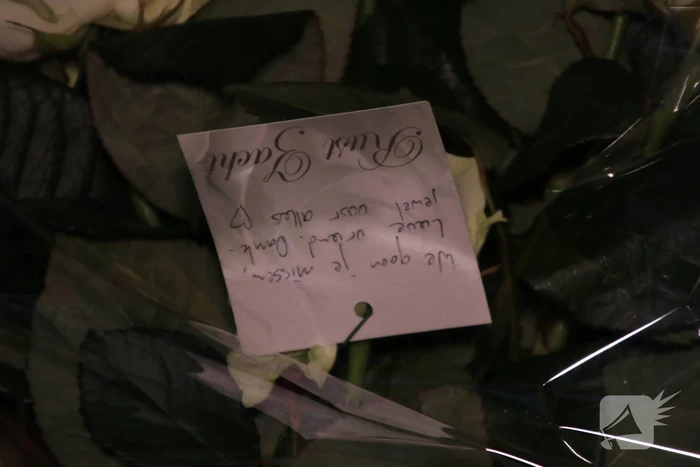 We gaan je missen,
Lieve vriend. Dank-
jewel voor alles ♡
Rust Zacht